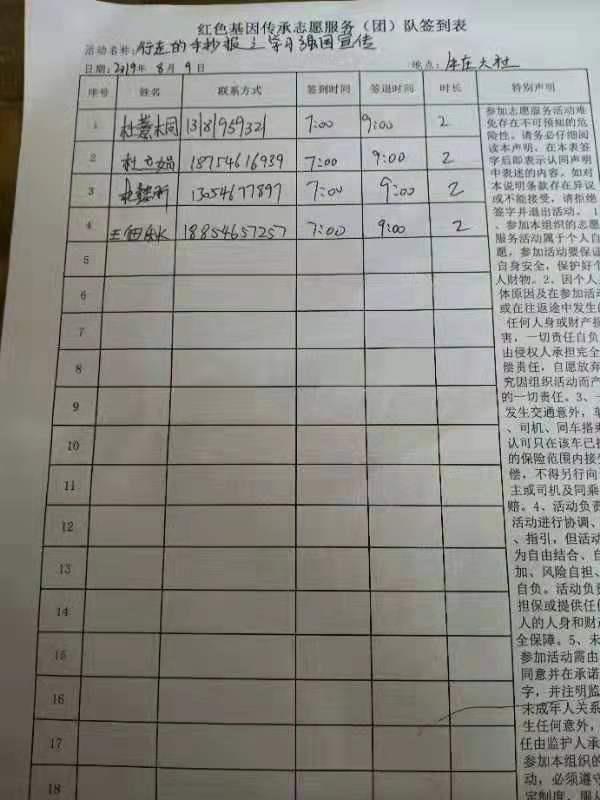 红色基因传承志愿服务（团）队签到表
活动名称：行走的手抄报之学习强国宣传
日期：2019年 8月 9日 地点：大社
序号 姓名 联系方式 签到时间 签退时间 时长 特别声明
1 13181959321 7:00 9:00 2
2 杜 娟 18754616939 7:00 9:00 2
3 13054677897 7:00 9:00 2
4 王 18854657257 7:00 9:00 2
5
6
7
8
9
10
11
12
13
14
15
16
17
18
参加志愿服务活动难
免存在不可预知的危
险性。请务必仔细阅
读本声明。在本表签
字后即表示认同声明
中表述的内容。如对
本说明条款存在异议
或不能接受，请拒绝
签字并退出活动。 1
、参加本组织的志愿
服务活动属于个人自
愿，参加活动要保证
自身安全，保护好个
人财物。2、因个人
体原因及在参加活动
或在往返途中发生的
任何人身或财产损
害，一切责任自负
由侵权人承担完全
偿责任，自愿放弃
究因组织活动而产
的一切责任。3、
发生交通意外，
、司机、同车搭乘
认可只在该车已
的保险范围内接受
偿，不得另行向
主或司机及同乘
赔。4、活动负责
活动进行协调、
、指引，但活动
为自由结合、自
加、风险自担、
自负。活动负责
担保或提供任何
人的人身和财产
全保障。5、未
参加活动需由
同意并在承诺
字，并注明监
未成年人关系
生任何意外，
任由监护人承
参加本组织的
动，必须遵守
定制度，服从